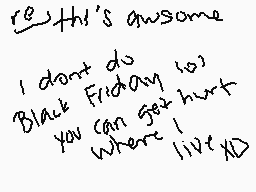 re this's awsome
i dont do
Black Friday lol
you can get hurt
where i
live XD